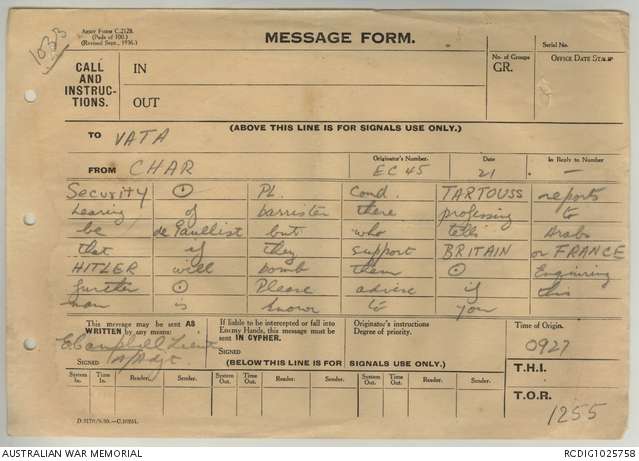 1033
Army Form C.2128.
(Pads of 100.)
(Revised Sept., 1936.)
MESSAGE FORM.
Serial No.
CALL
AND
INSTRUC-
TIONS.
IN
OUT
No. of Groups
GR.
OFFICE DATE STAMP
(ABOVE THIS LINE IS FOR SIGNALS USE ONLY.)
TO VATA
FROM CHAR
Originator's Number.
EC 45
Date
21
In Reply to Number
—
Security ⊙ PL. Cond. TARTOUSS reports
hearing of barrister there professing to
be de Gaullist but who tells Arabs
that if they support BRITAIN or FRANCE
HITLER will bomb them ⊙ Enquiring
further ⊙ Please advise if this
man is known to you
This message may be sent AS
WRITTEN by any means.
ECampbell Lieut
SIGNED A/Adjt
If liable to be intercepted or fall into
Enemy Hands, this message must be
sent IN CYPHER.
SIGNED
Originator's instructions
Degree of priority.
Time of Origin.
0927
(BELOW THIS LINE IS FOR SIGNALS USE ONLY.)
T.H.I.
System In. Time In. Reader. Sender. System Out. Time Out. Reader. Sender. System Out. Time Out. Reader. Sender.
T.O.R.
1255
AUSTRALIAN WAR MEMORIAL
RCDIG1025758